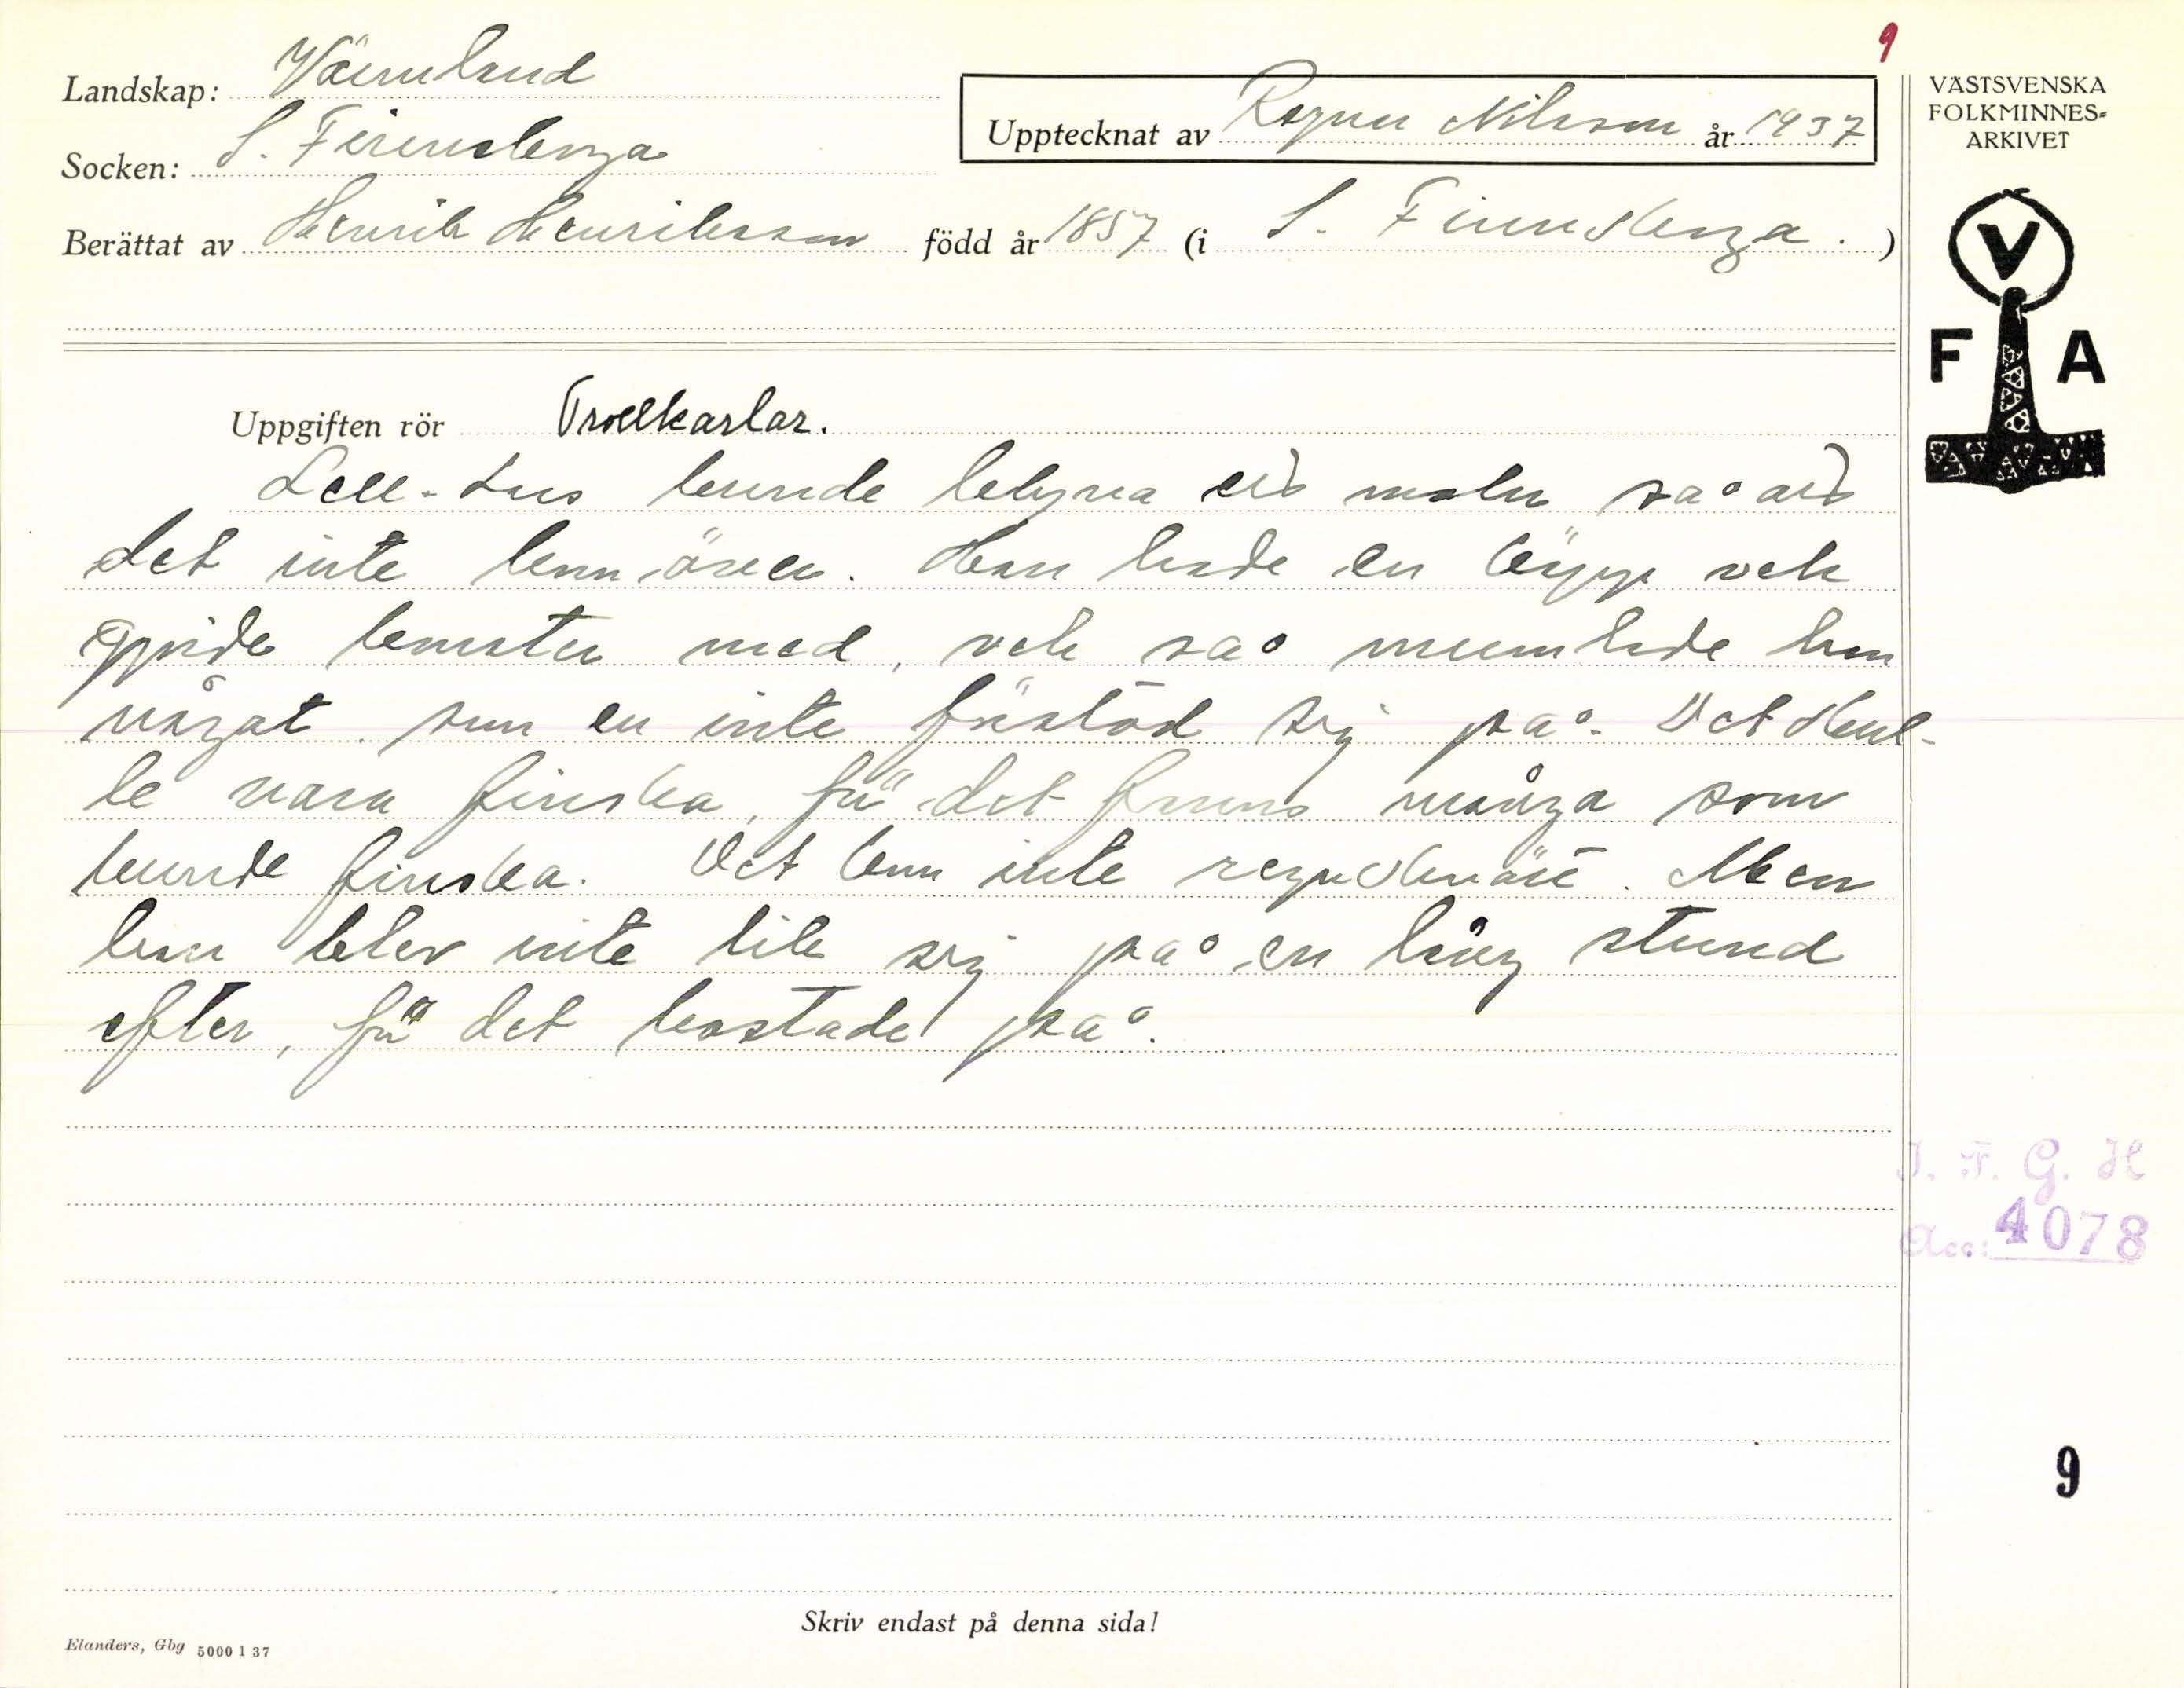 9
Landskap: Värmland
Socken: S. Finnskoga
Upptecknat av Ragnar Nilsson år 1937
Berättat av Henrik Henriksson född år 1857 (i S. Finnskoga.)
VÄSTSVENSKA
FOLKMINNES-
ARKIVET
V
F A
Uppgiften rör Trollkarlar.
Lell-Lus kunde klyva ett moln så att
det inte kom över. Han hade en käpp och
spride konster med, och så mumlade han
något som en inte förstod sig på. Det skul-
le vara finska, för det fanns många som
kunde finska. Det kom inte regn senare. Men
han blev inte lik sig på en lång stund
efter, för det kostade på.
I. F. G. H
Acc: 4078
9
Skriv endast på denna sida!
Elanders, Gbg 5000 1 37